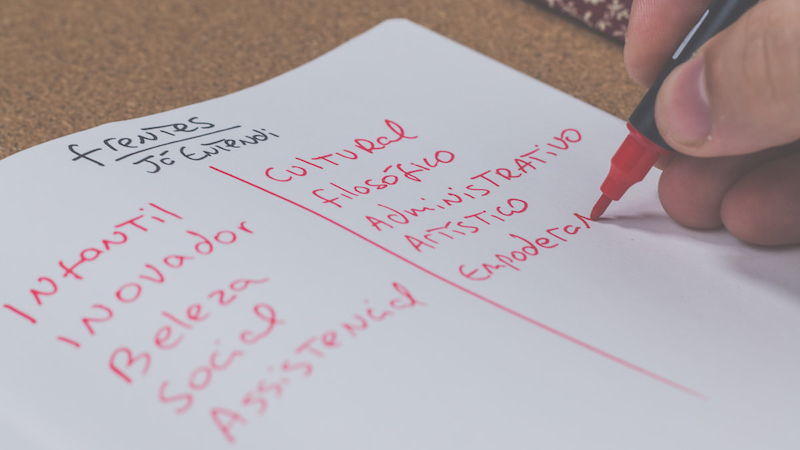 frentes
Já Entendi
Infantil
Inovador
Beleza
Social
Assistencial
Cultural
filosófico
Administrativo
Artístico
Empodera